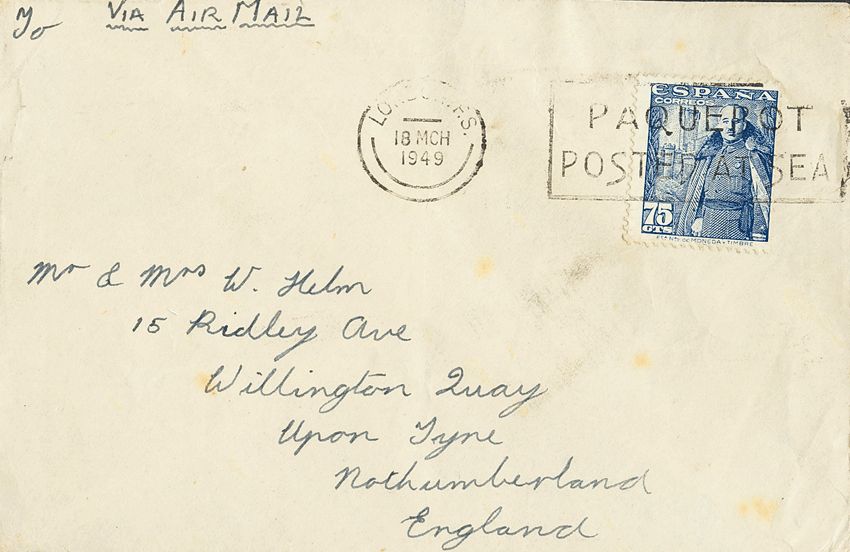 To VIA AIR MAIL
LONDON F.S.
18 MCH
1949
PAQUEBOT
POSTED AT SEA
ESPAÑA
CORREOS
75
CTS
DE MONEDA Y TIMBRE
Mr & Mrs W. Helm
15 Ridley Ave
Willington Quay
Upon Tyne
Nothumberland
England